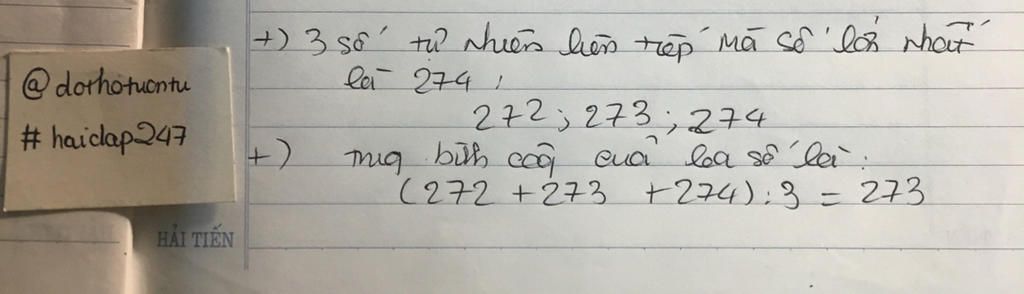 @dorhotuantu
# haiclap247
+) 3 số tự nhiên liên tiếp mà số lớn nhất
là 274,
272; 273; 274
+) trung bình cộng của ba số là:
(272 + 273 + 274) : 3 = 273
HẢI TIẾN